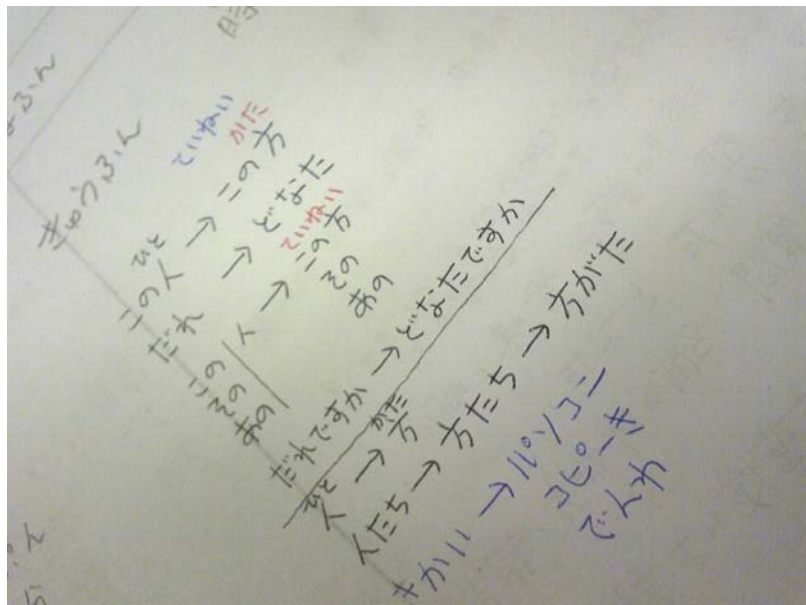 きゅうふん
ていねい
ひと
がた
この人 → この方
だれ → どなた
ていねい
この
その
あの
人 → この方
その
あの
だれですか → どなたですか
ひと
がた
人 → 方
人たち → 方たち → 方がた
きかい → パソコン
コピーき
でんわ